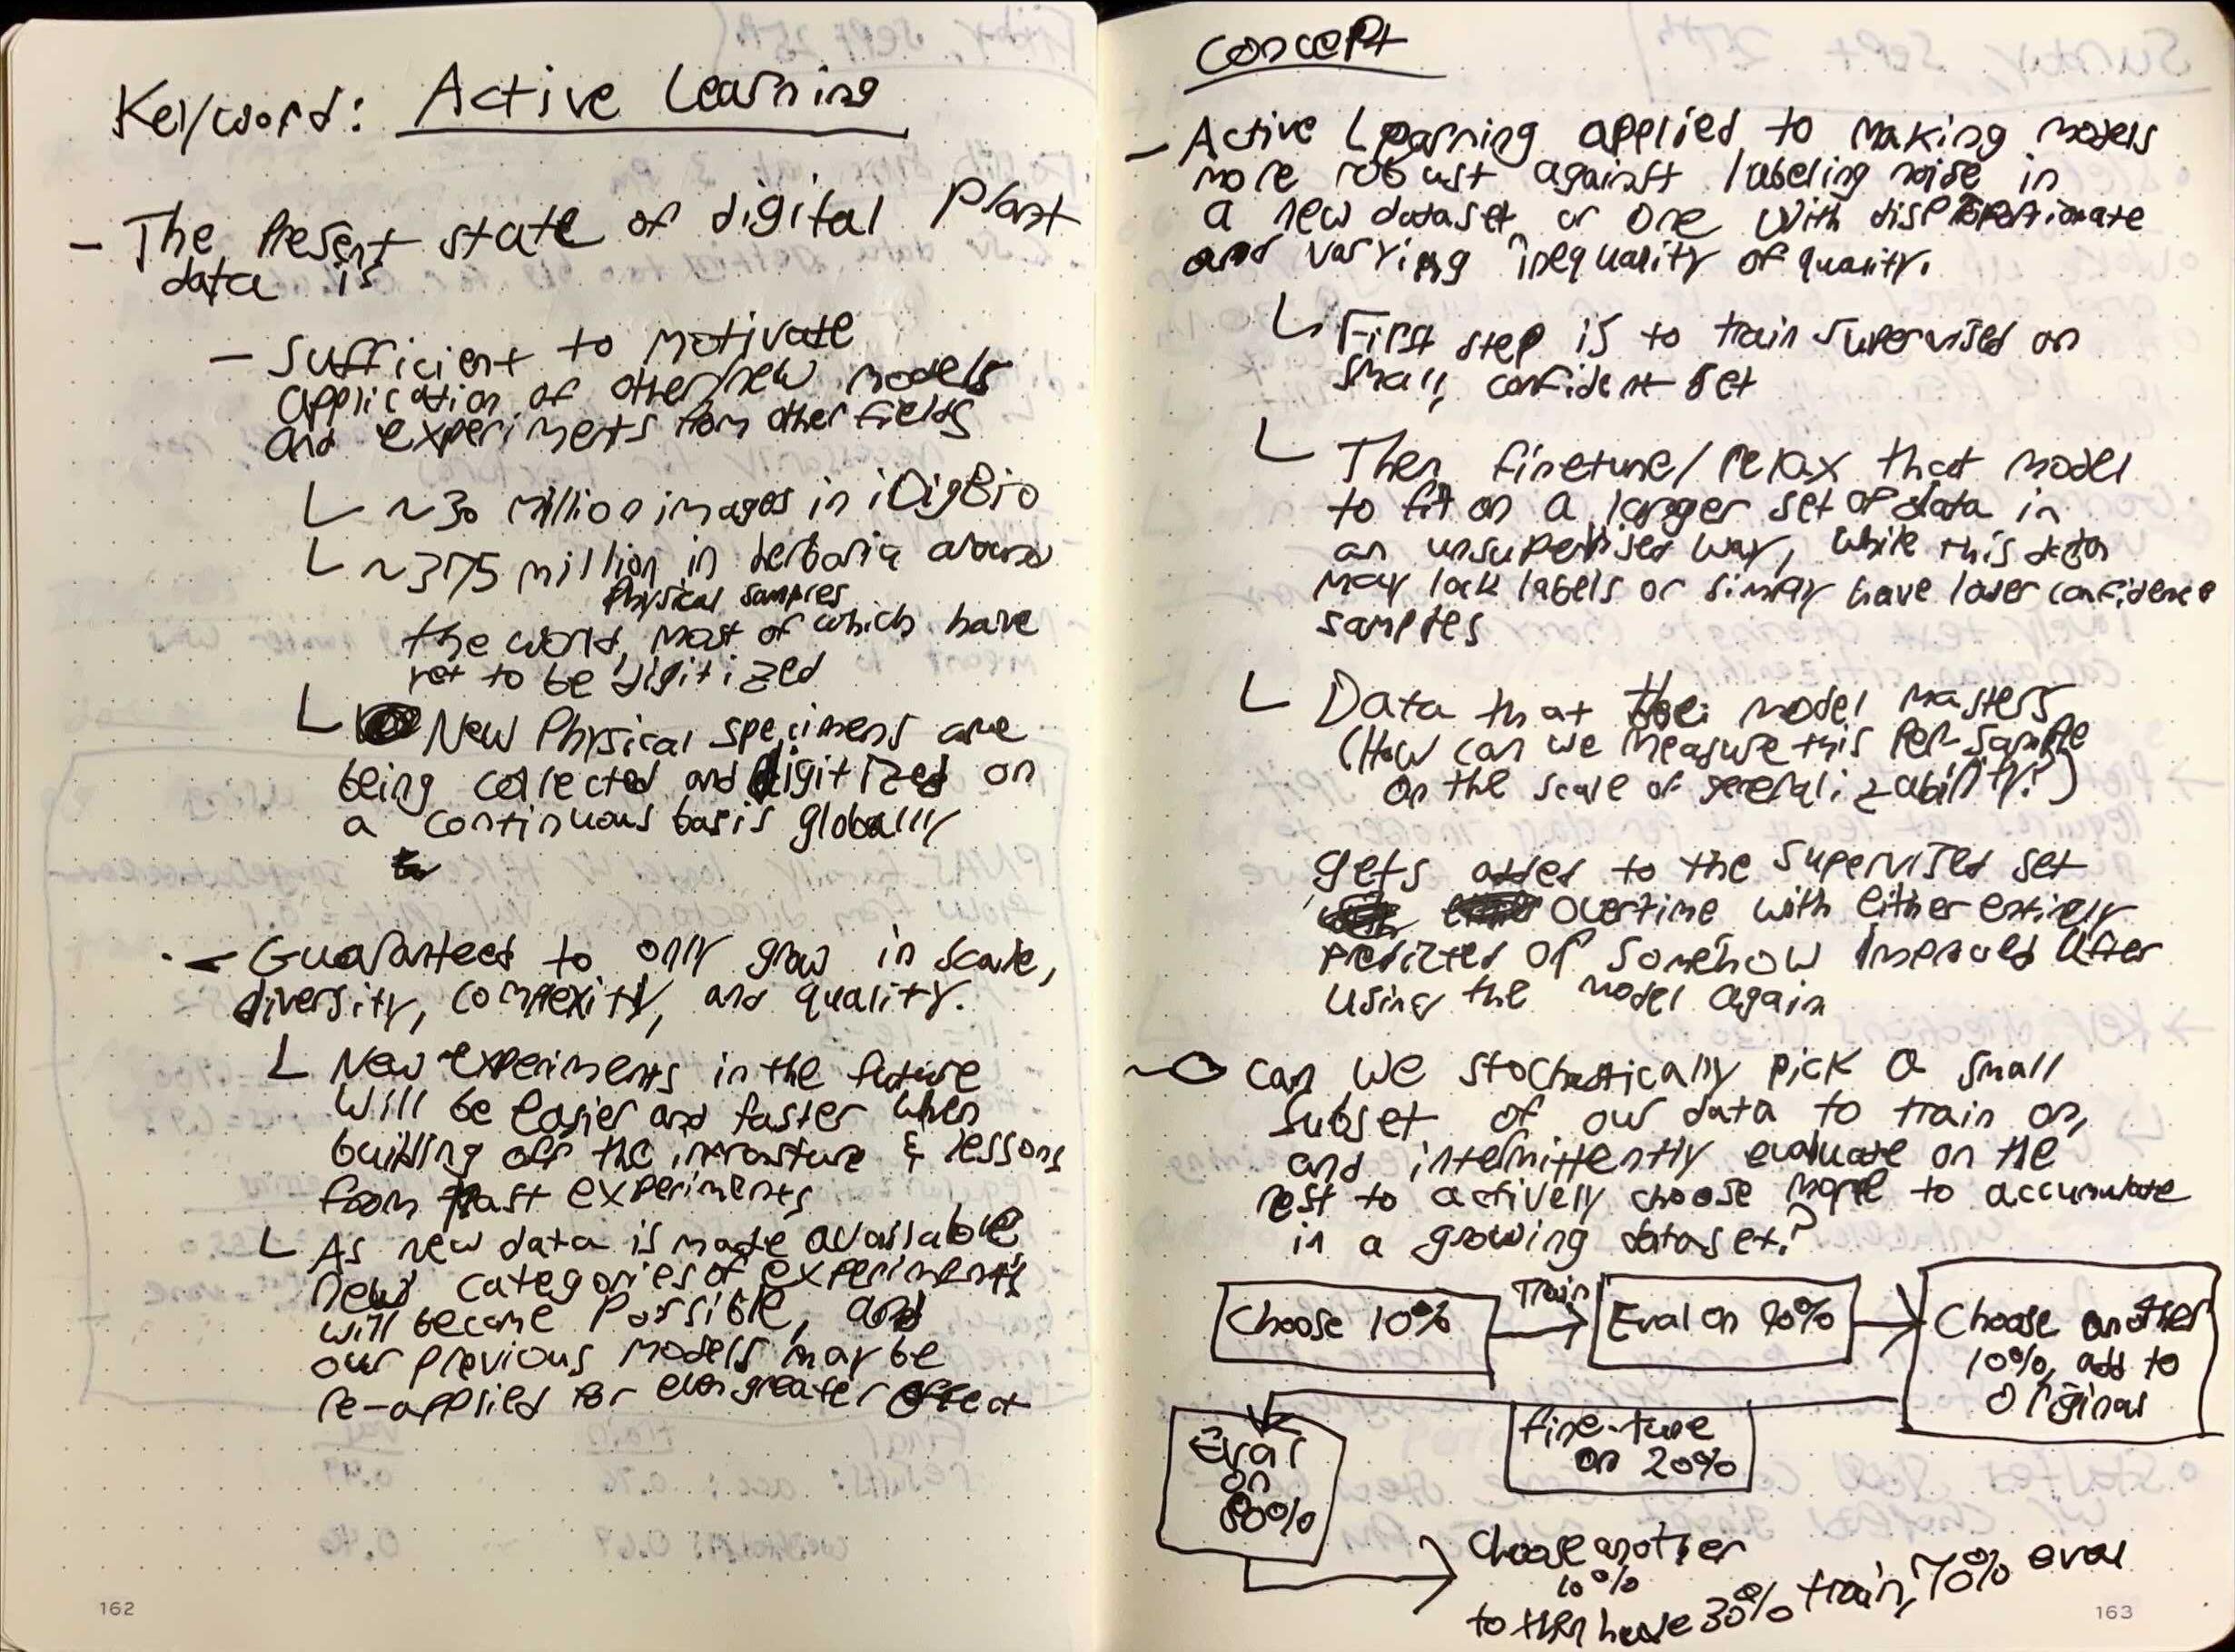 Keyword: Active Learning
- The Present state of digital Plant
data is
- Sufficient to motivate
application of other/new models
and experiments from other fields
~30 million images in iDigBio
~375 million in herbaria around
Physical samples
the world, most of which have
yet to be digitized
New Physical specimens are
being collected and digitized on
a continuous basis globally
- Guaranteed to only grow in scale,
diversity, complexity, and quality.
New experiments in the future
will be easier and faster when
building off the & lessons
from past experiments
As new data is made available
new categories of experiments
will become Possible, and
our previous models may be
re-applied for even greater effect
162
Concept
- Active Learning applied to making models
more robust against labeling noise in
a new dataset, or one with disproportionate
and varying inequality of quality.
First step is to train supervised on
small, confident set
Then finetune/relax that model
to fit on a larger set of data in
an unsupervised way, while this data
may lack labels or simply have lower confidence
samples
Data that the model masters
(How can we measure this per-sample
on the scale of generalizability?)
gets added to the supervised set
overtime with either entirely
predicted or somehow improved after
using the model again
Can we stochastically pick a small
subset of our data to train on,
and intermittently evaluate on the
rest to actively choose more to accumulate
in a growing dataset?
Choose 10%
Train
Eval on 90%
Choose another
10%, add to
original
fine-tune
on 20%
Eval
on
80%
Choose another
10%
to then have 30% train, 70% eval
163